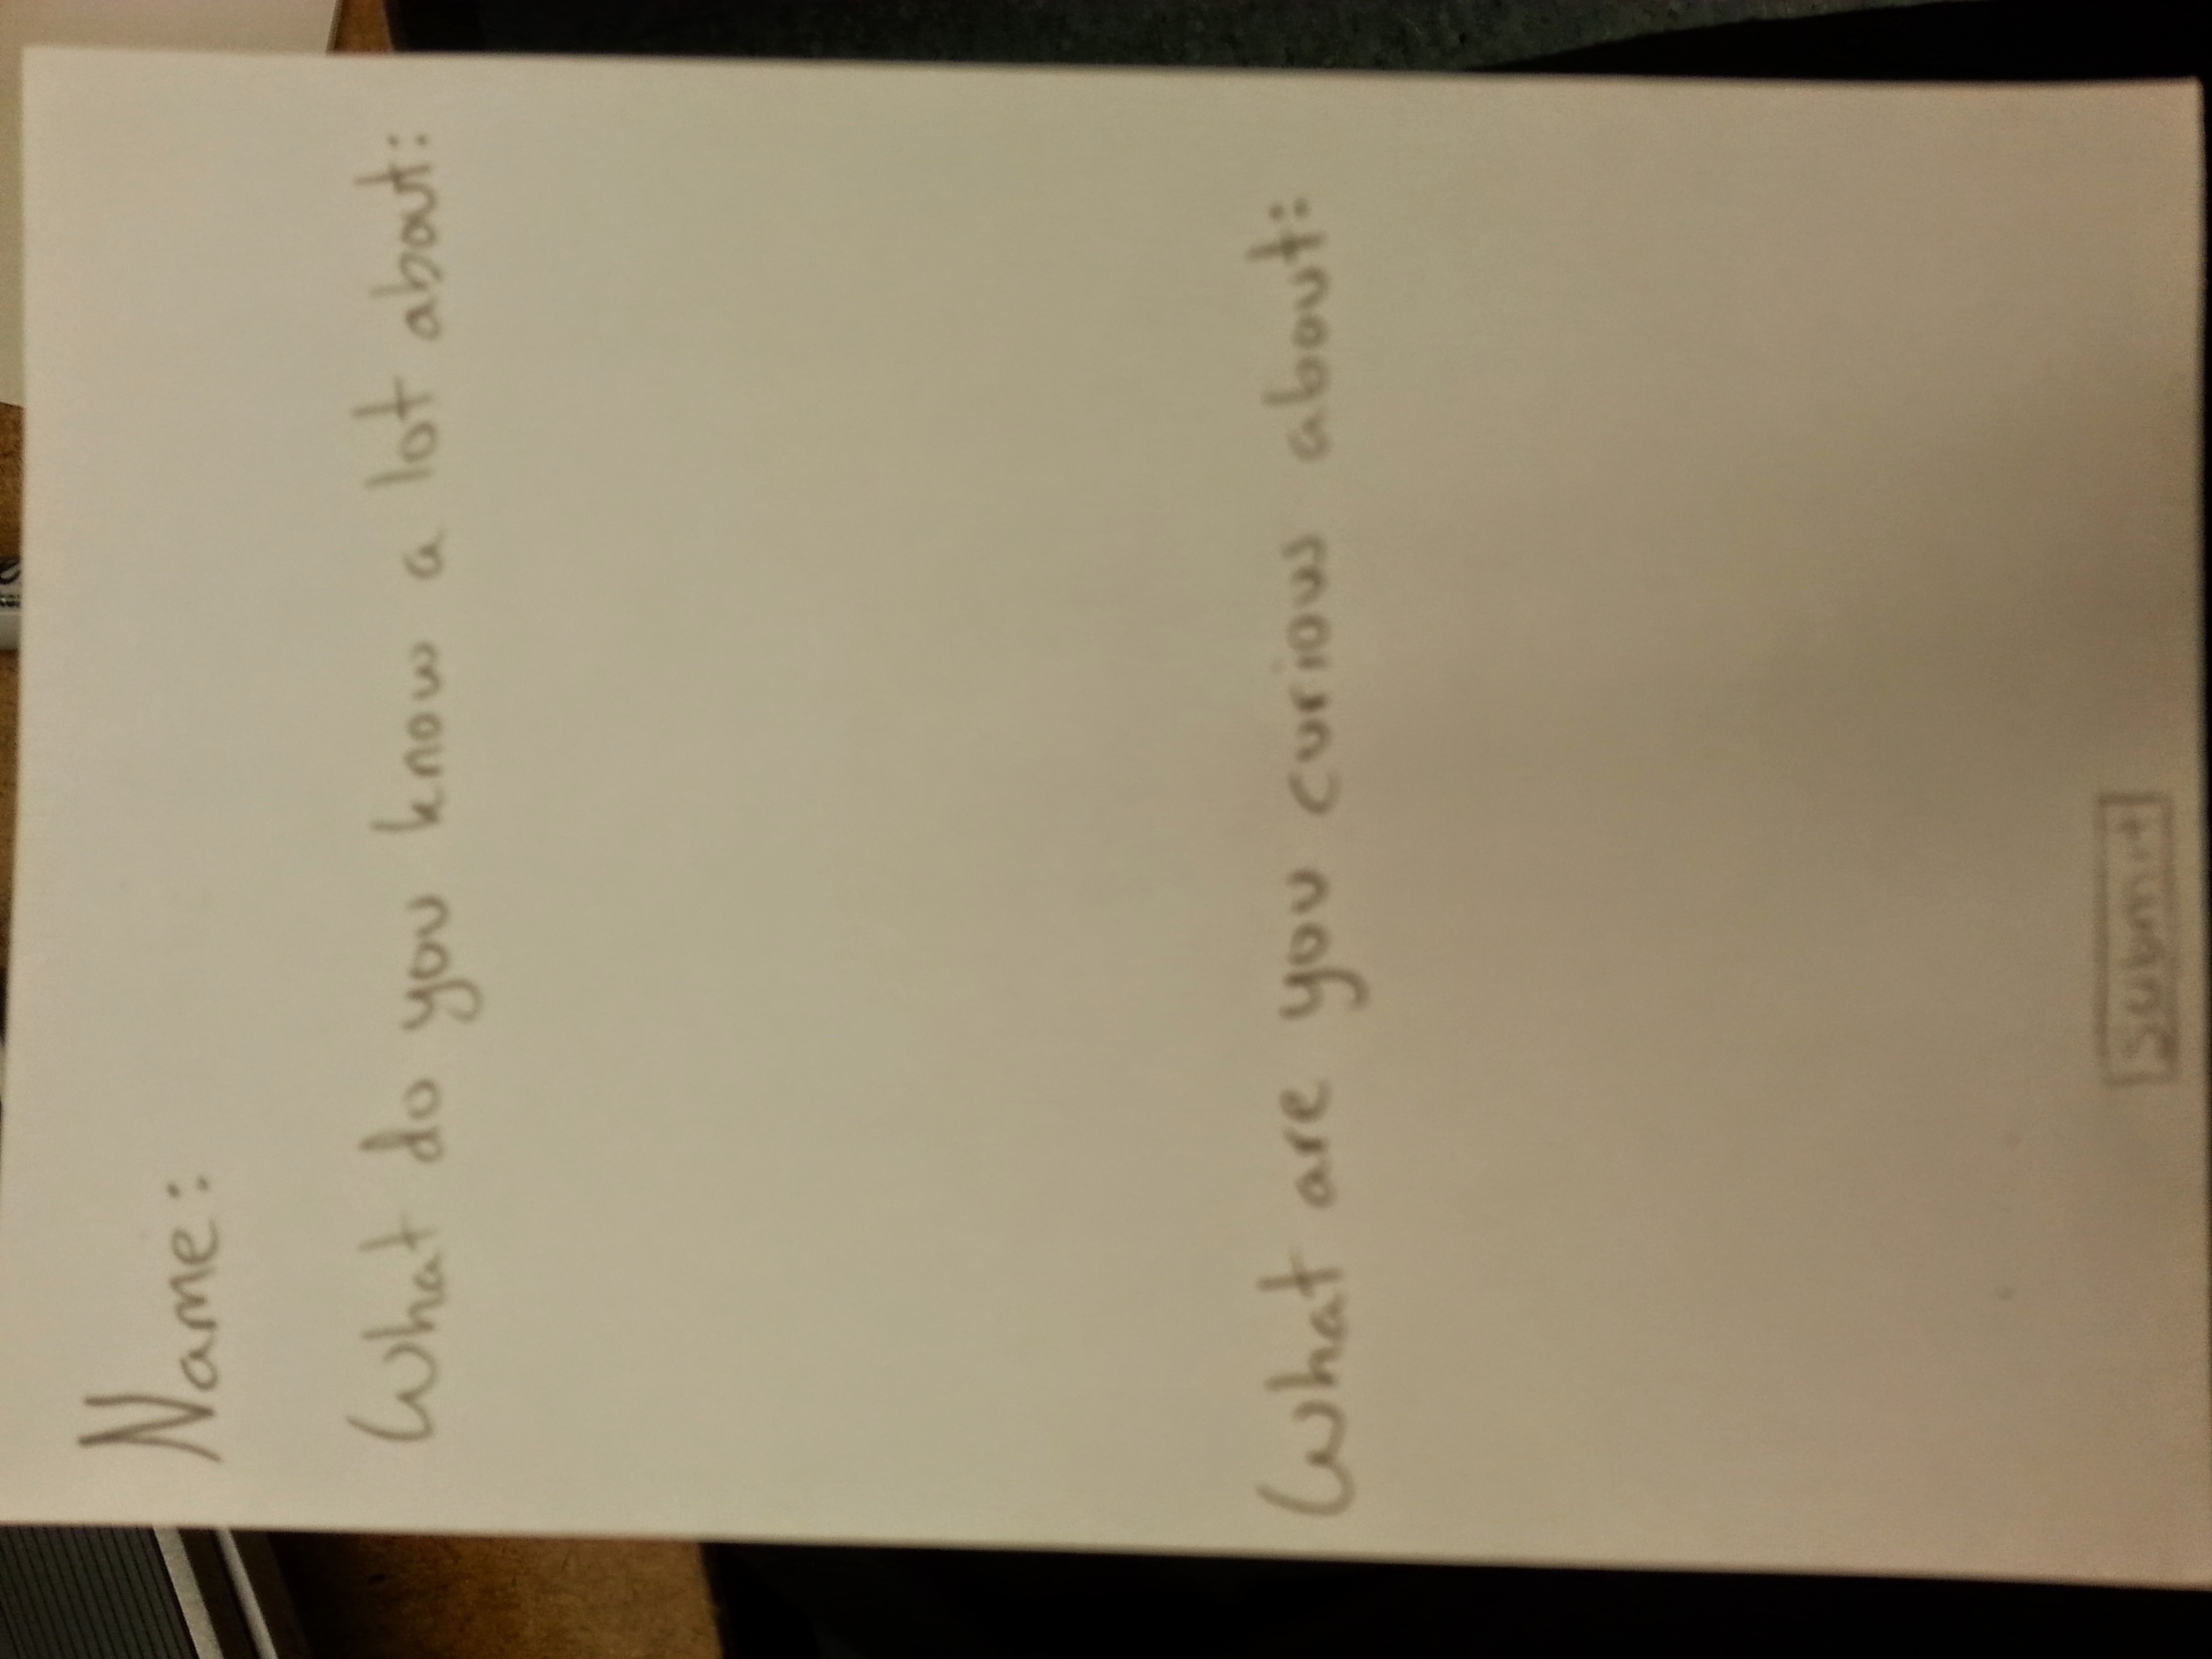 Name:
What do you know a lot about:
What are you curious about:
Submit